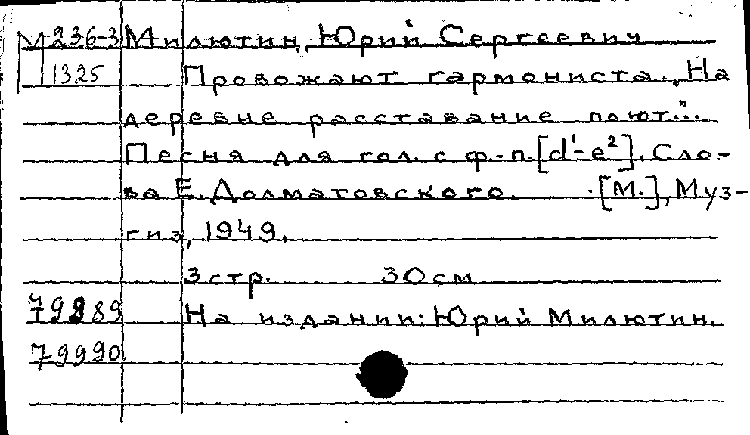 М 236-3 Милютин, Юрий Сергеевич
1325 Провожают гармониста. „На
деревне расставание поют..."
Песня для гол. с ф.-п. [d¹-e²]. Сло-
ва Е. Долматовского. [М.], Муз-
гиз, 1949.
3 стр. 30 см
79989 На издании: Юрий Милютин.
79990